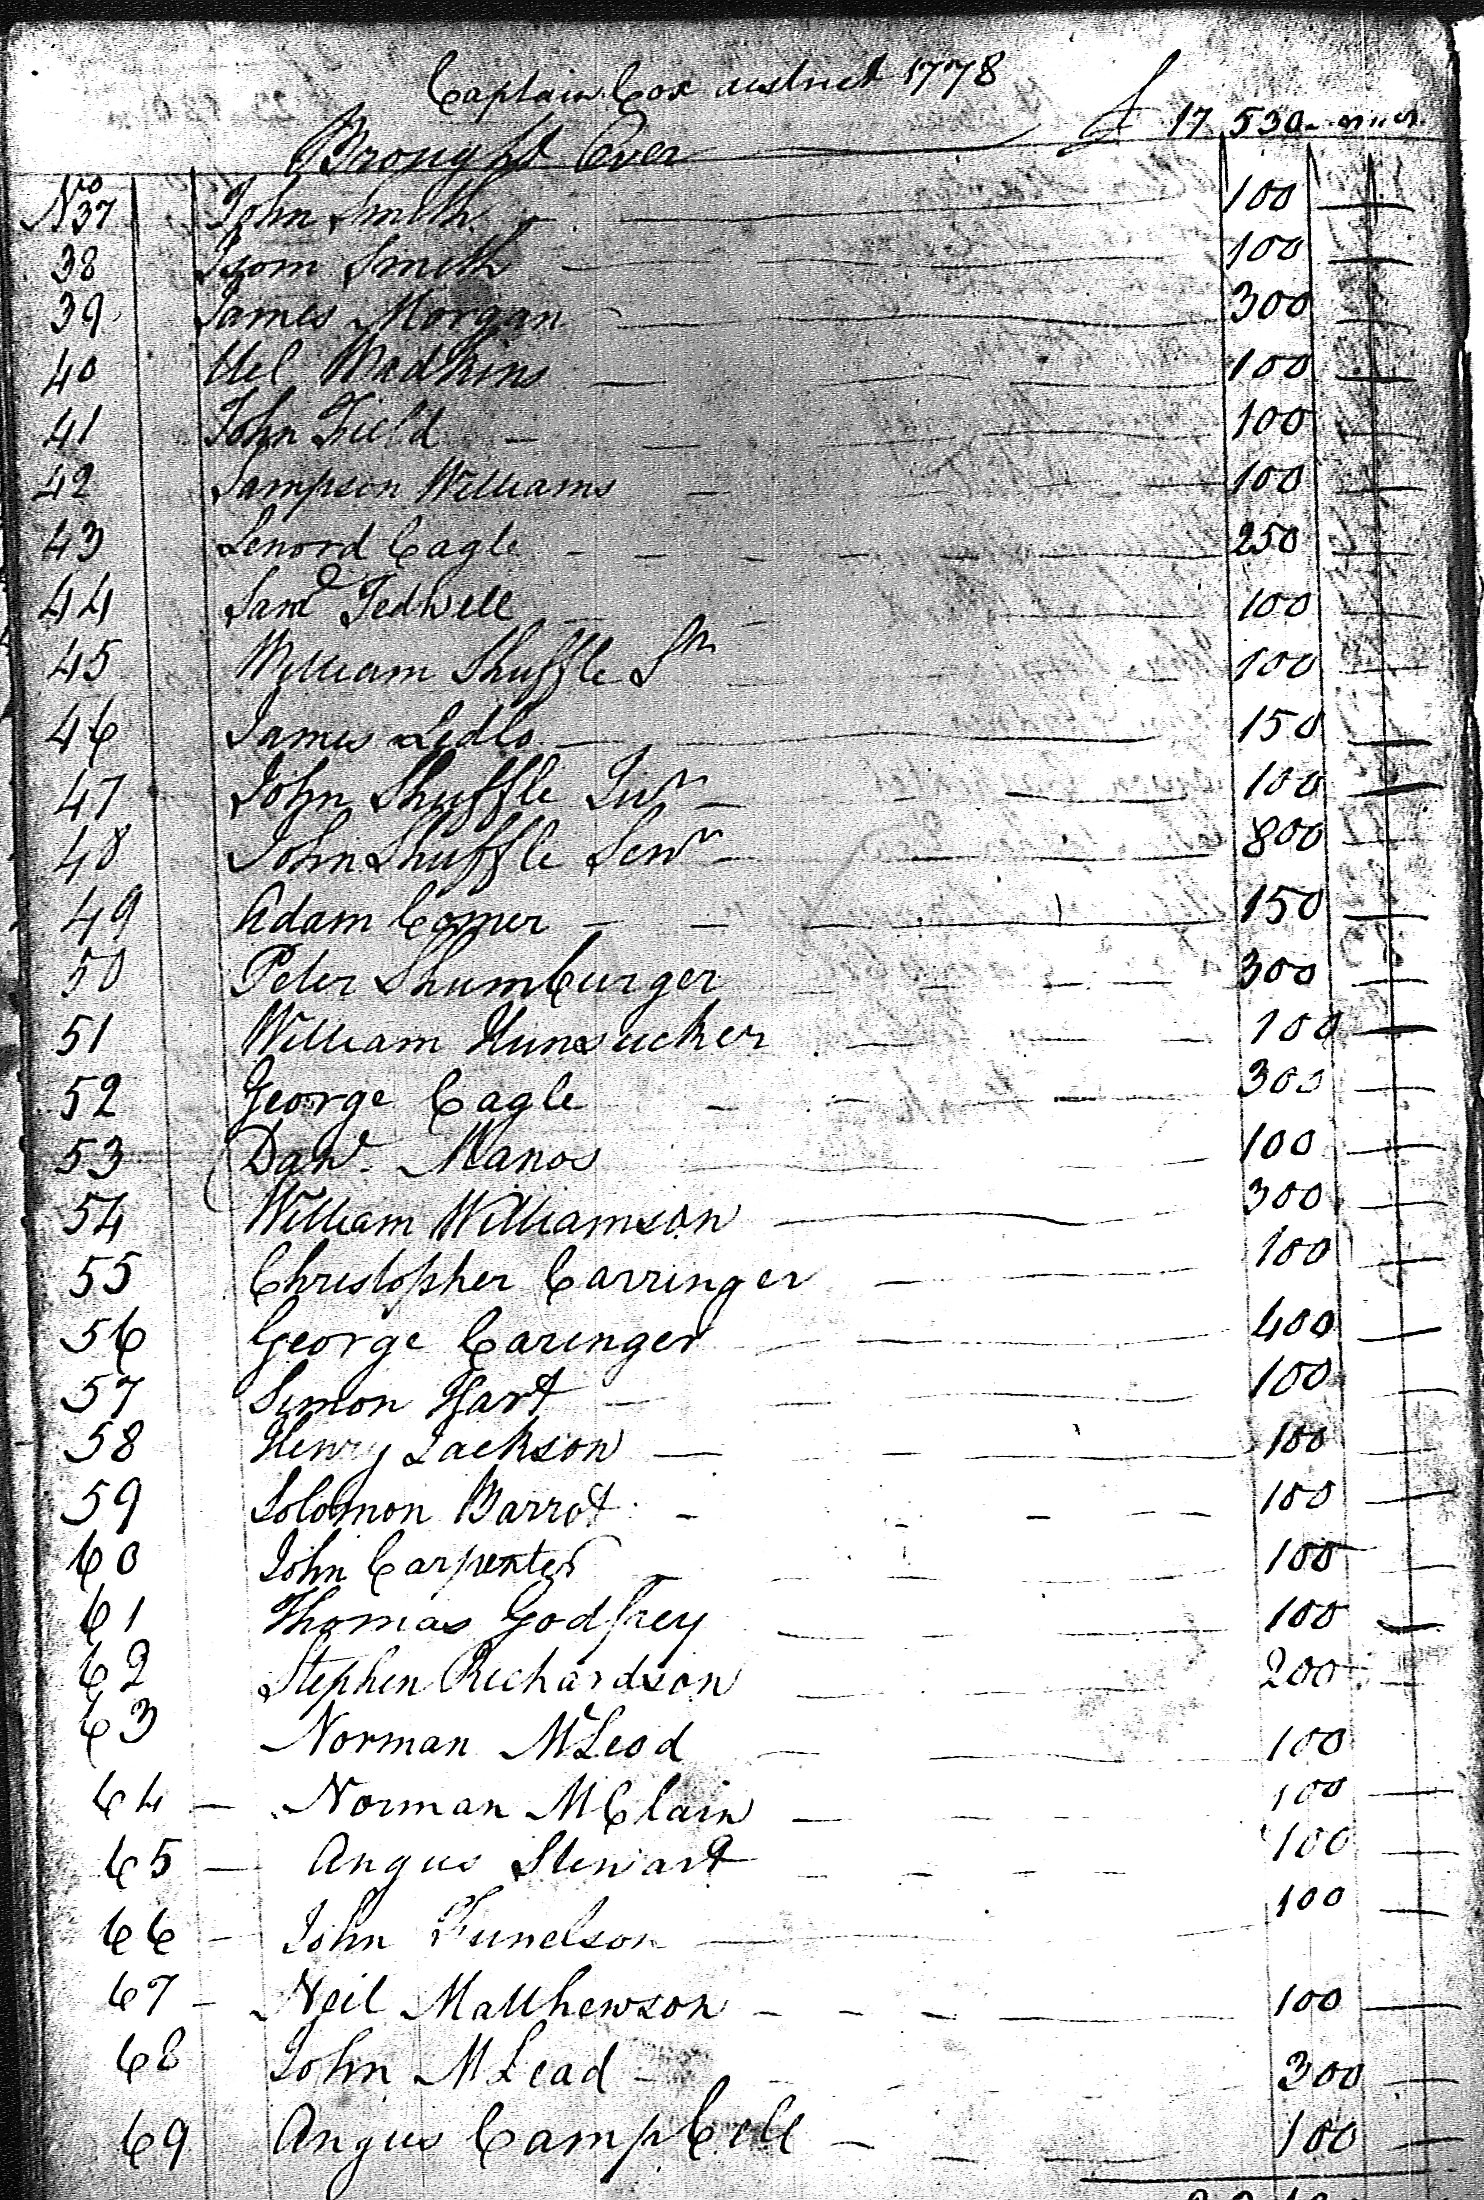 Captain Cox district 1778
Brought Over £ 17,530
No 37 John Smith 100
38 Smith 100
39 James Morgan 300
40 Madkins 100
41 John Field 100
42 Sampson Williams 100
43 Lenord Cagle 250
44 Saml Tedwell 100
45 William Shuffle Sr 100
46 James Ledlo 150
47 John Shuffle Junr 100
48 John Shuffle Senr 800
49 Adam Comer 150
50 Peter Shumburger 300
51 William Hunsucker 100
52 George Cagle 300
53 Danl. Manos 100
54 William Williamson 300
55 Christopher Carringer 100
56 George Caringer 400
57 Simon Hart 100
58 Henry Jackson 100
59 Solomon Barrot 100
60 John Carpenter 100
61 Thomas Godfrey 100
62 Stephen Richardson 200
63 Norman McLeod 100
64 Norman McClain 100
65 Angus Stewart 100
66 John 100
67 Neil Matthewson 100
68 John McLead 300
69 Angus Campbell 100